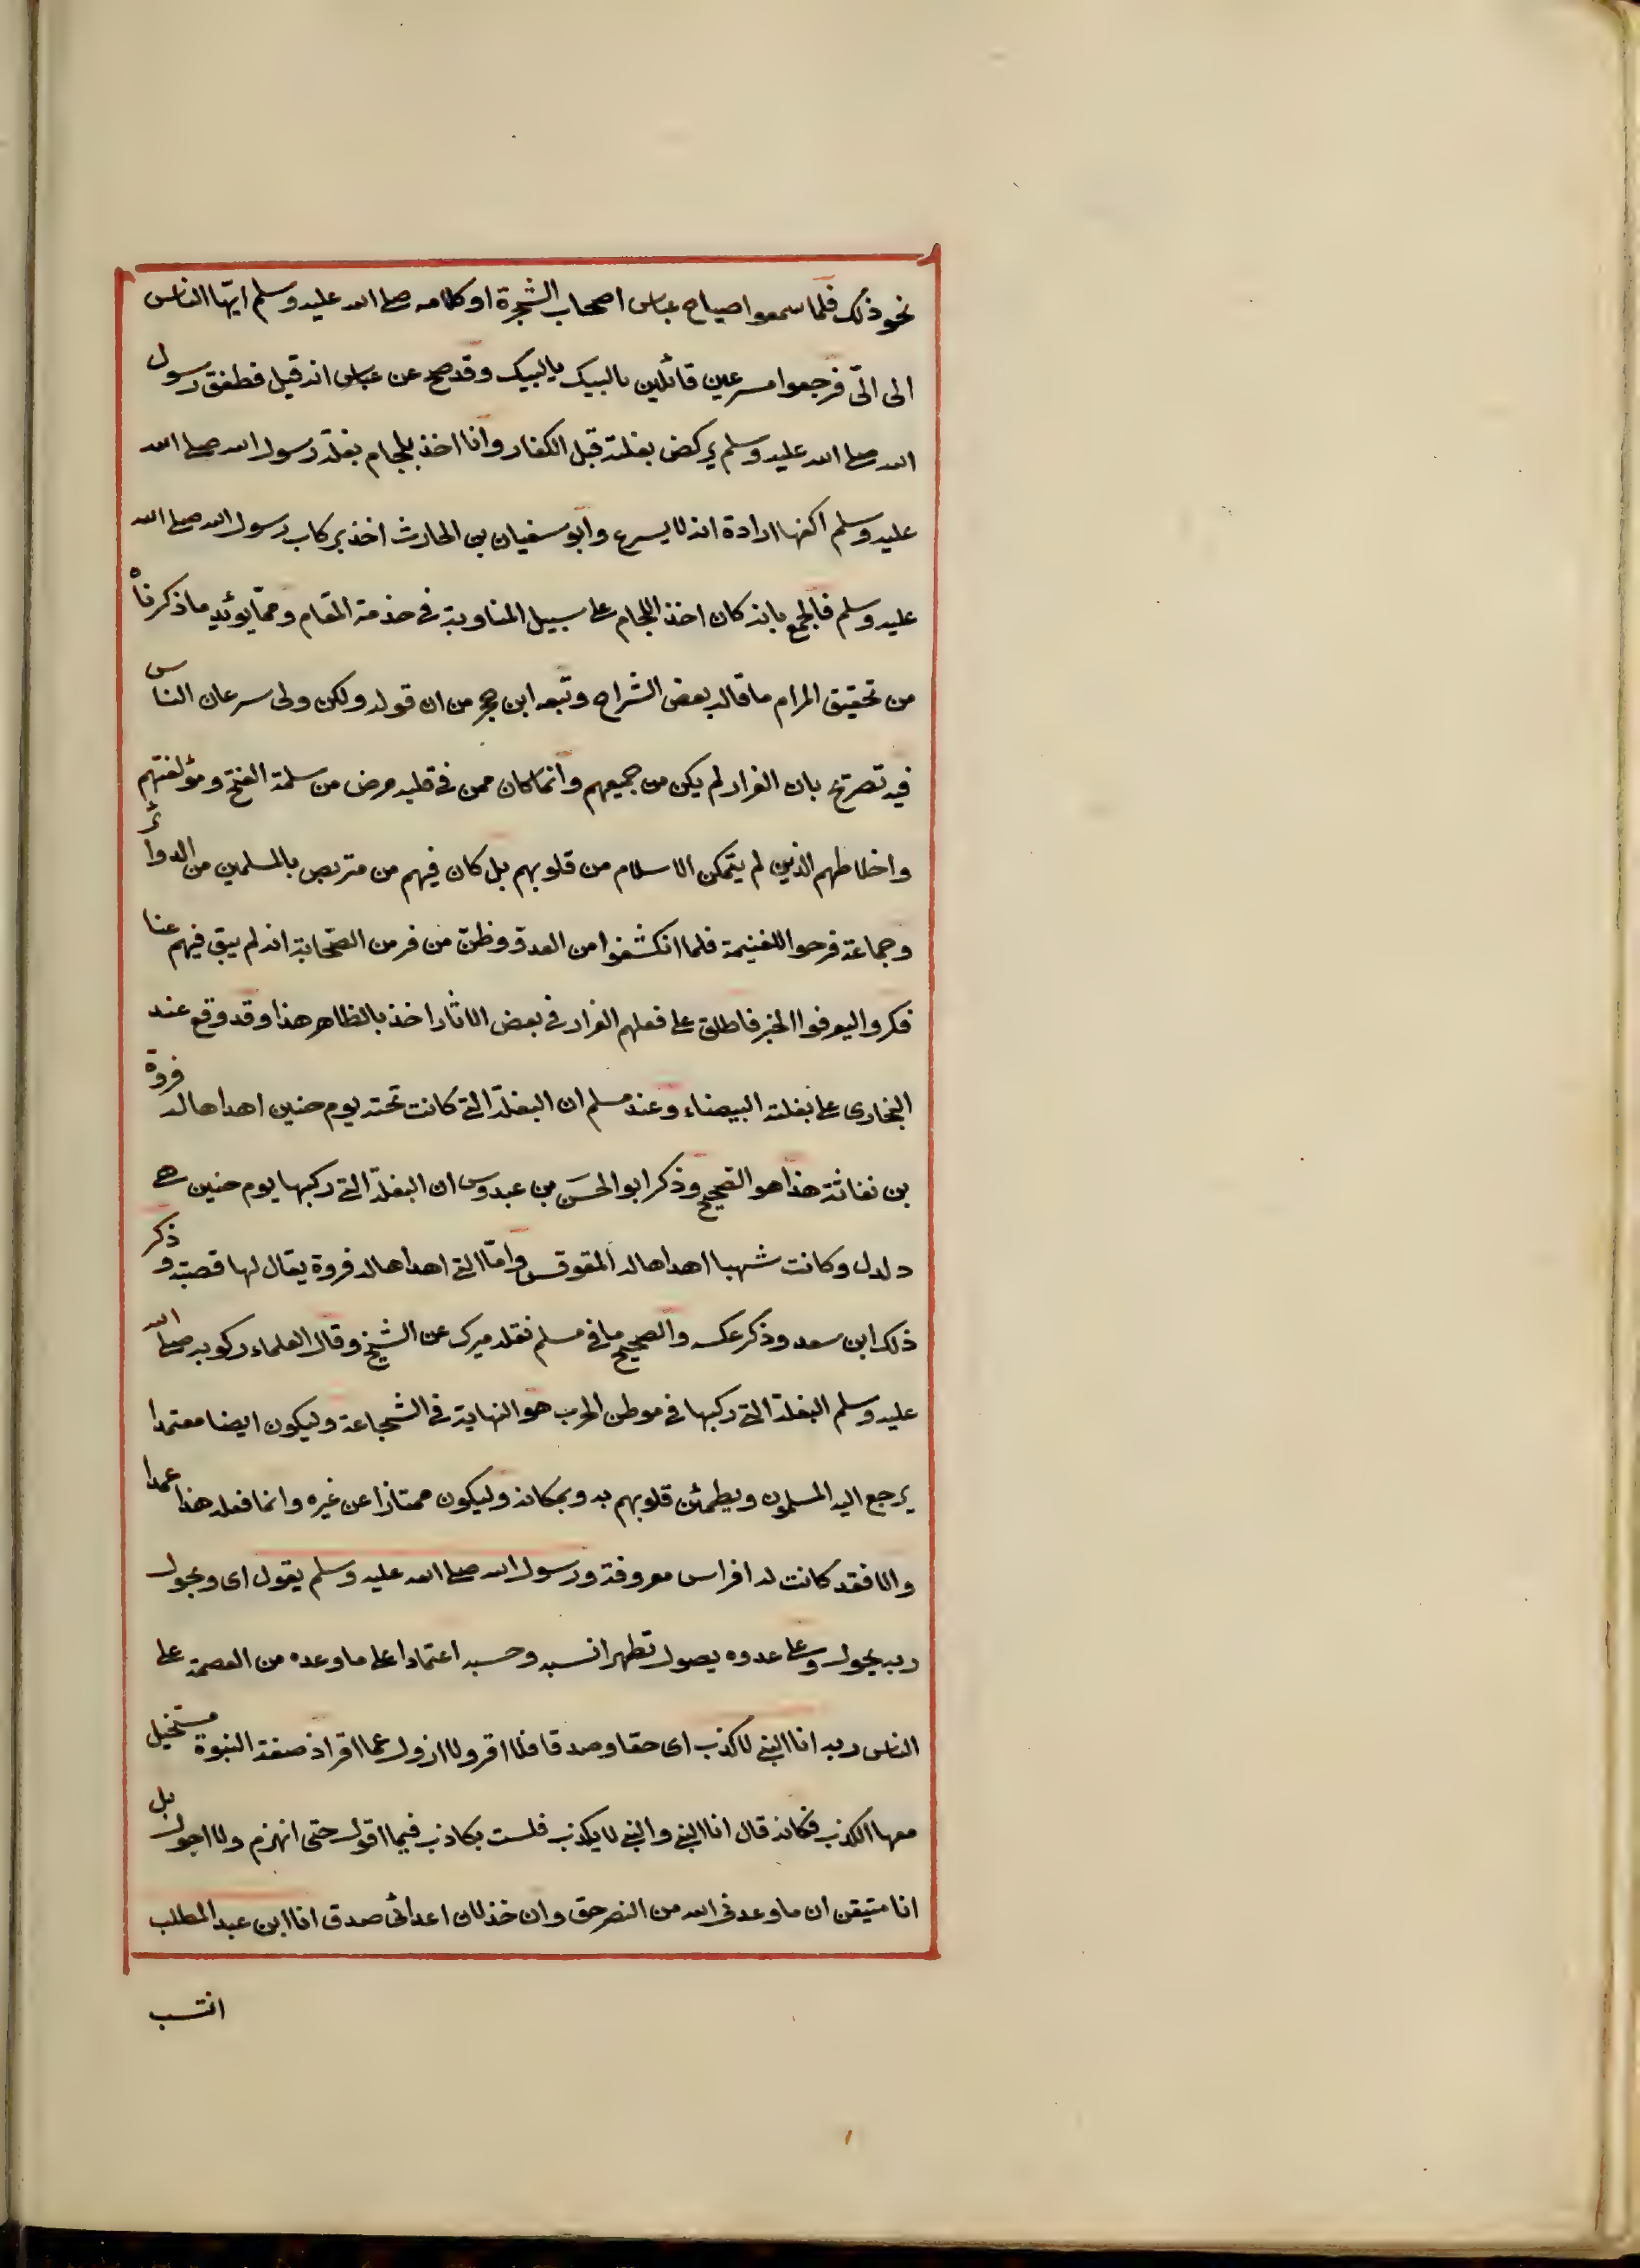 نحو ذلك فلما سمعوا صياح عباس اصحاب الشجرة او كلامه صلى الله عليه وسلم ايها الناس
الى الىّ فرجعوا مسرعين قائلين يالبيك يالبيك وقد صح عن عباس انه قيل فطفق رسول
الله صلى الله عليه وسلم يركض بغلته قبل الكفار وانا اخذ بلجام بغلة رسول الله صلى الله
عليه وسلم اكفها ارادة انه لا يسرع وابو سفيان بن الحارث اخذ بركاب رسول الله صلى الله
عليه وسلم فالجمع بانه كان اخذ اللجام على سبيل المناوبة فى خدمة المقام ومما يوئيد ما ذكرناه
من تحقيق المرام ما قاله بعض الشراح وتبعه ابن حجر من ان قوله ولكن ولى سرعان الناس
فيه تصريح بان الفرار لم يكن من جميعهم وانما كان ممن فى قلبه مرض من سلمة الفتح ومؤلفتهم
واخلاطهم الذين لم يتمكن الاسلام من قلوبهم بل كان فيهم من متربص بالمسلمين من الدوائر
وجماعة فرحوا للغنيمة فلما انكشفوا من العدو وظن من فر من الصحابة انه لم يبق فيهم عنا
فكروا ليعرفوا الخبر فاطلق على فعلهم الفرار فى بعض الاثار اخذ بالظاهر هذا وقد وقع عند
البخارى على بغلته البيضاء وعند مسلم ان البغلة التى كانت تحته يوم حنين اهداها له فروة
بن نفاثة هذا هو الصحيح وذكر ابو الحسن بن عبدوس ان البغلة التى ركبها يوم حنين هى
دلدل وكانت شهبا اهداها له المقوقس واما التى اهداها له فروة يقال لها فضة وذكر
ذلك ابن سعد وذكر عكسه والصحيح ما فى مسلم نقله ميرك عن الشيخ وقال العلماء ركوبه صلى الله
عليه وسلم البغلة التى ركبها فى موطن الحرب هو النهاية فى الشجاعة وليكون ايضا معتمدا
يرجع اليه المسلمون ويطمئن قلوبهم به وبمكانه وليكون ممتازا عن غيره وانما فعله هذا عمدا
والا فقد كانت له افراس معروفة ورسول الله صلى الله عليه وسلم يقول اى وبحول
ربه يجول وعلى عدوه يصول تطهرا نسبه وحسبه اعتمادا على ما وعده من العصمة على
الناس ربه انا النبى لا كذب اى حقا وصدقا فلا افر ولا ازول عما اقر اذ صفة النبوة مستحيل
معها الكذب فكانه قال انا النبى والنبى لا يكذب فلست بكاذب فيما اقول حتى انهزم ولا اجول بل
انا متيقن ان ما وعدنى الله من النصر حق وان خذلان اعدائى صدق انا ابن عبد المطلب
انتسب